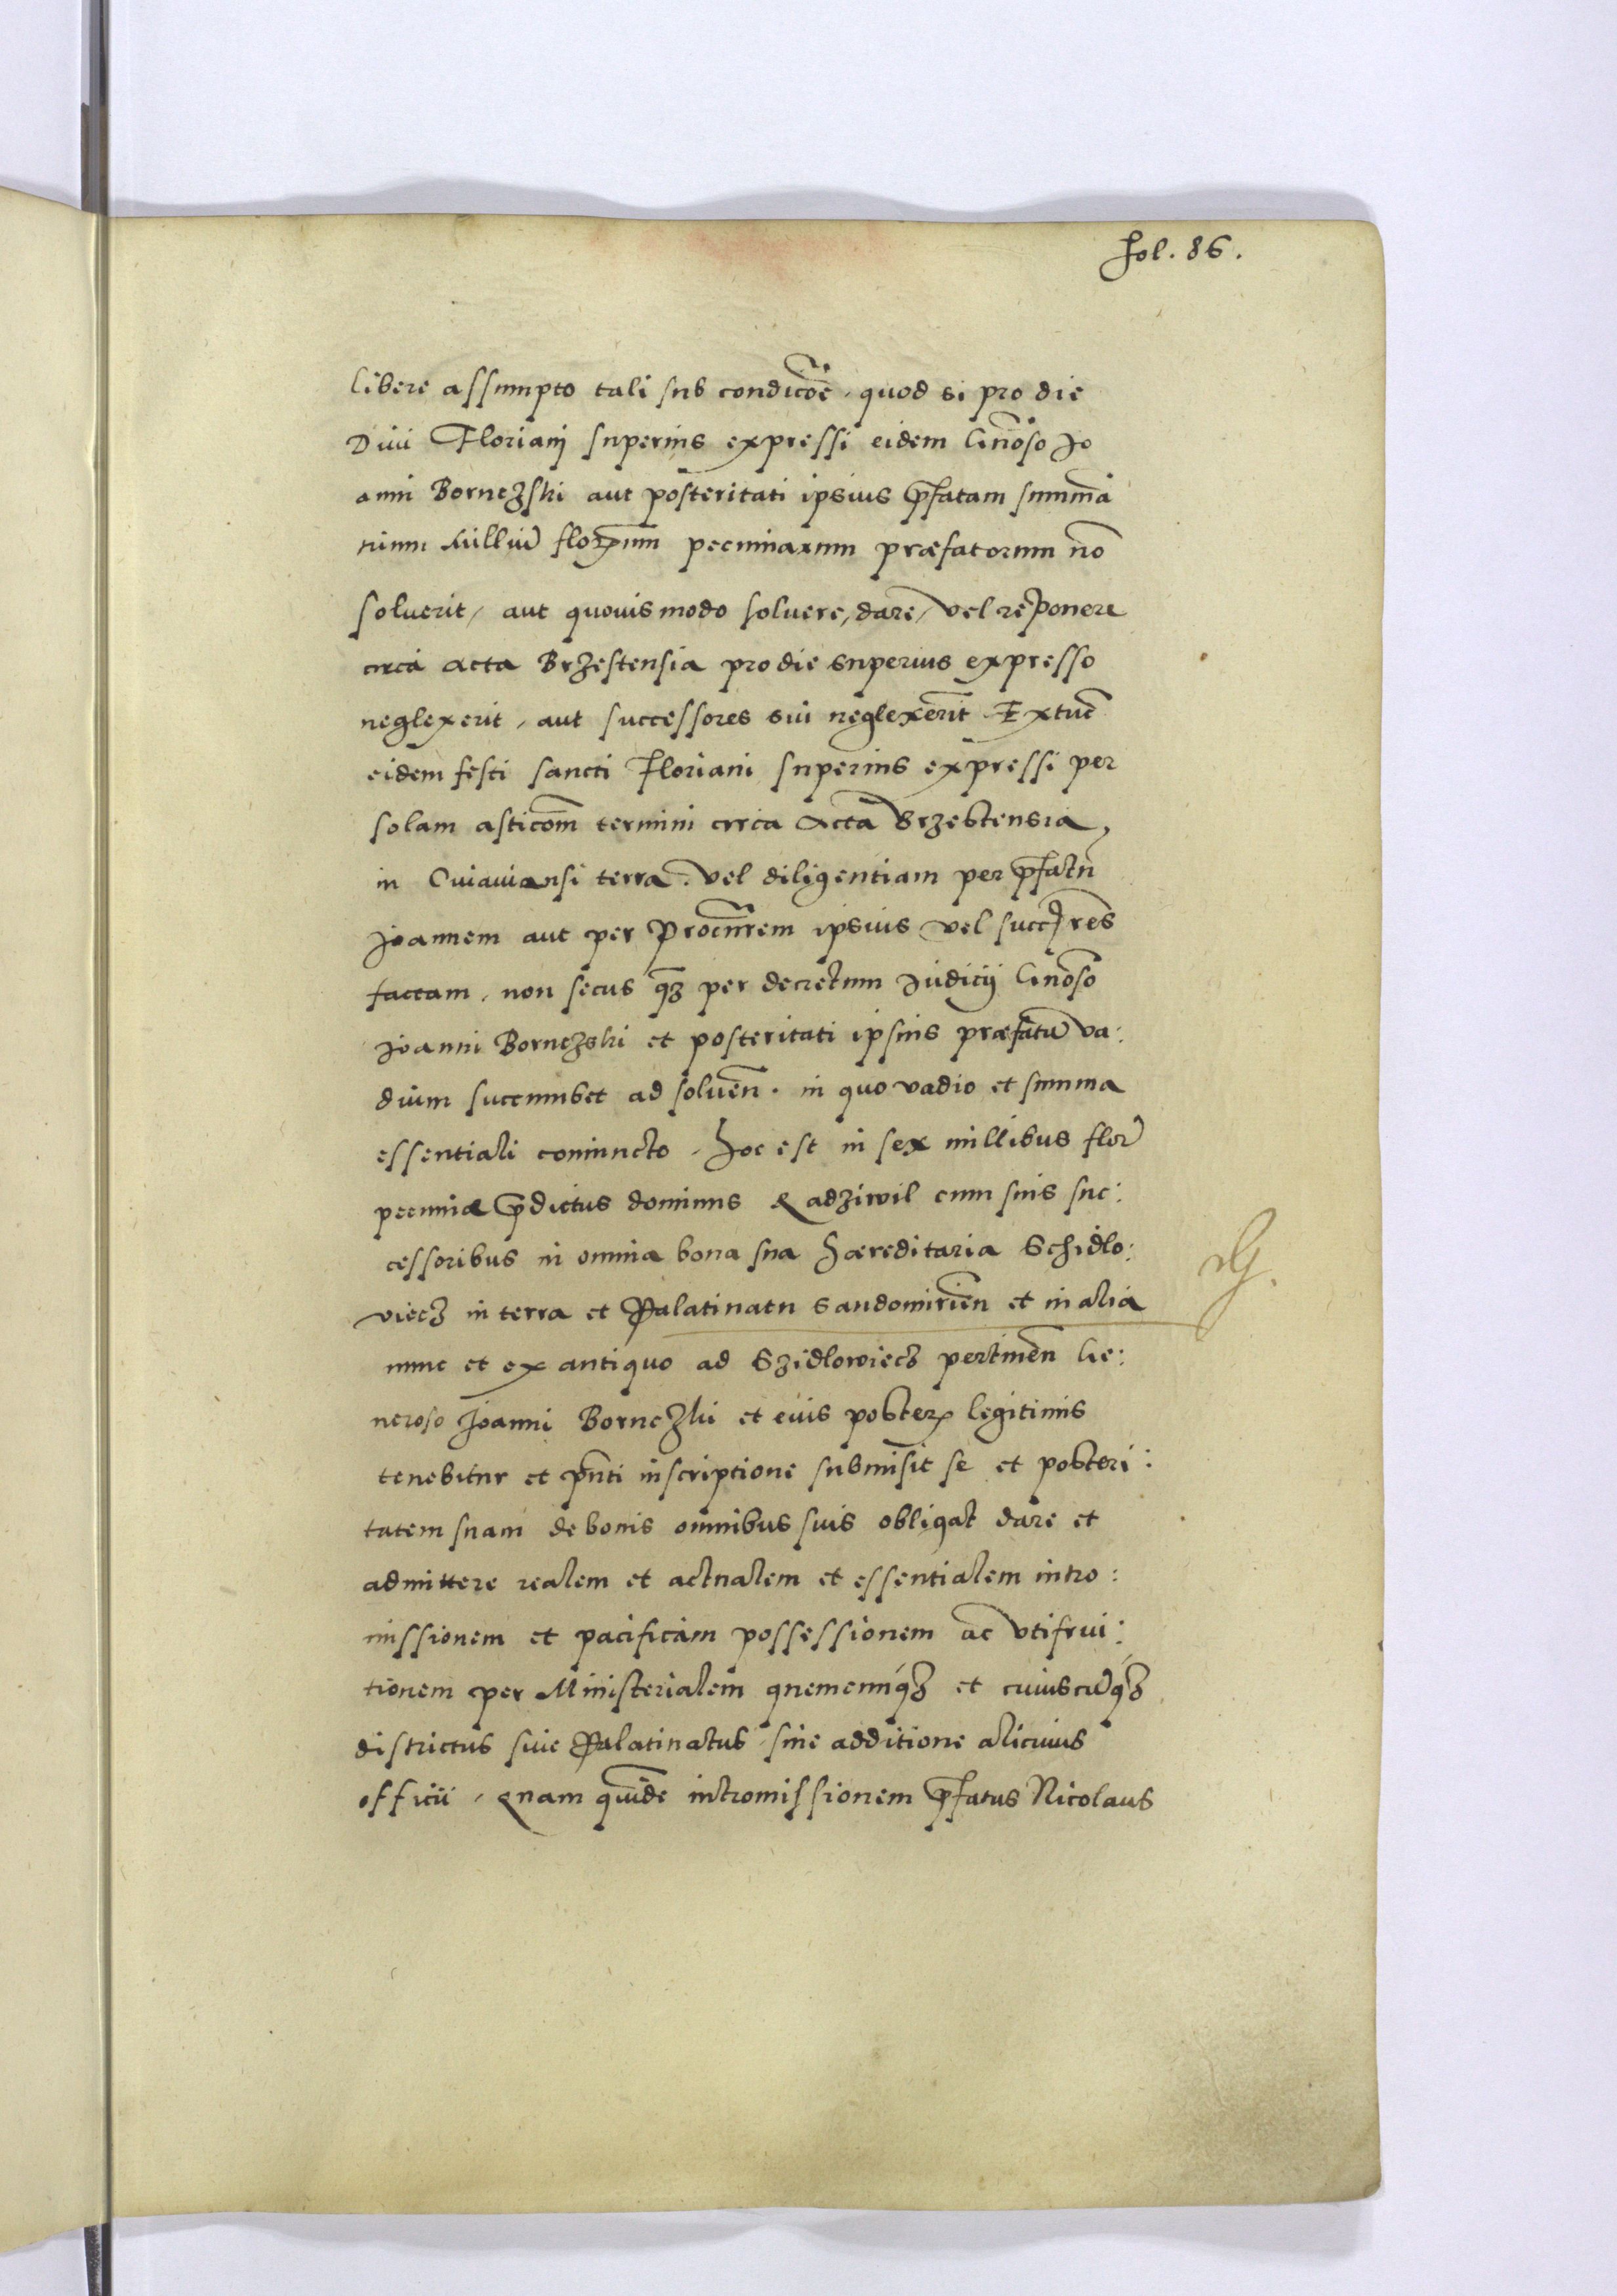 fol. 86.
libere assumpto tali sub condicōe, quod si pro die
Diui Floriani superius expressi eidem Gn̄oso Jo
anni Bornczski aut posteritati ipsius p̄fatam summā
trium milliū florum pecuniarum præfatorum nō
soluerit, aut quouis modo soluere, dare, vel reponere
circa acta Brzestensia pro die superius expresso
neglexerit, aut successores sui neglexerīt Extūc
eidem festi sancti Floriani superius expressi per
solam asticōm termini circa Acta Brzestensia,
in Cuiauiansi terra. vel diligentiam per p̄fatū
Joannem aut per Procur̄rem ipsius vel succ̄res
factam, non secus q̄z per decretum Judicij Gn̄oso
Joanni Bornczski et posteritati ipsius præfatū va:
dium succumbet ad soluēn. in quo vadio et summa
essentiali coniuncto, hoc est in sex millibus flor̄
pecuniæ p̄dictus dominus Radziwil cum suis suc:
cessoribus in omnia bona sua hæreditaria Schidlo:
viecz in terra et Palatinatu Sandomiriēn et in alia
nunc et ex antiquo ad Szidlowiecz pertinēn Ge:
neroso Joanni Bornczki et eius poster legitimis
tenebitur et pn̄ti inscriptione submisit se et posteri:
tatem suam de bonis omnibus suis obligat dare et
admittere realem et actualem et essentialem intro:
missionem et pacificam possessionem ac vtifrui:
tionem per Ministerialem quemcunqz et cuiuscūqz
districtus siue Palatinatus, sine additione alicuius
officii, quam quidē intromissionem p̄fatus Nicolaus